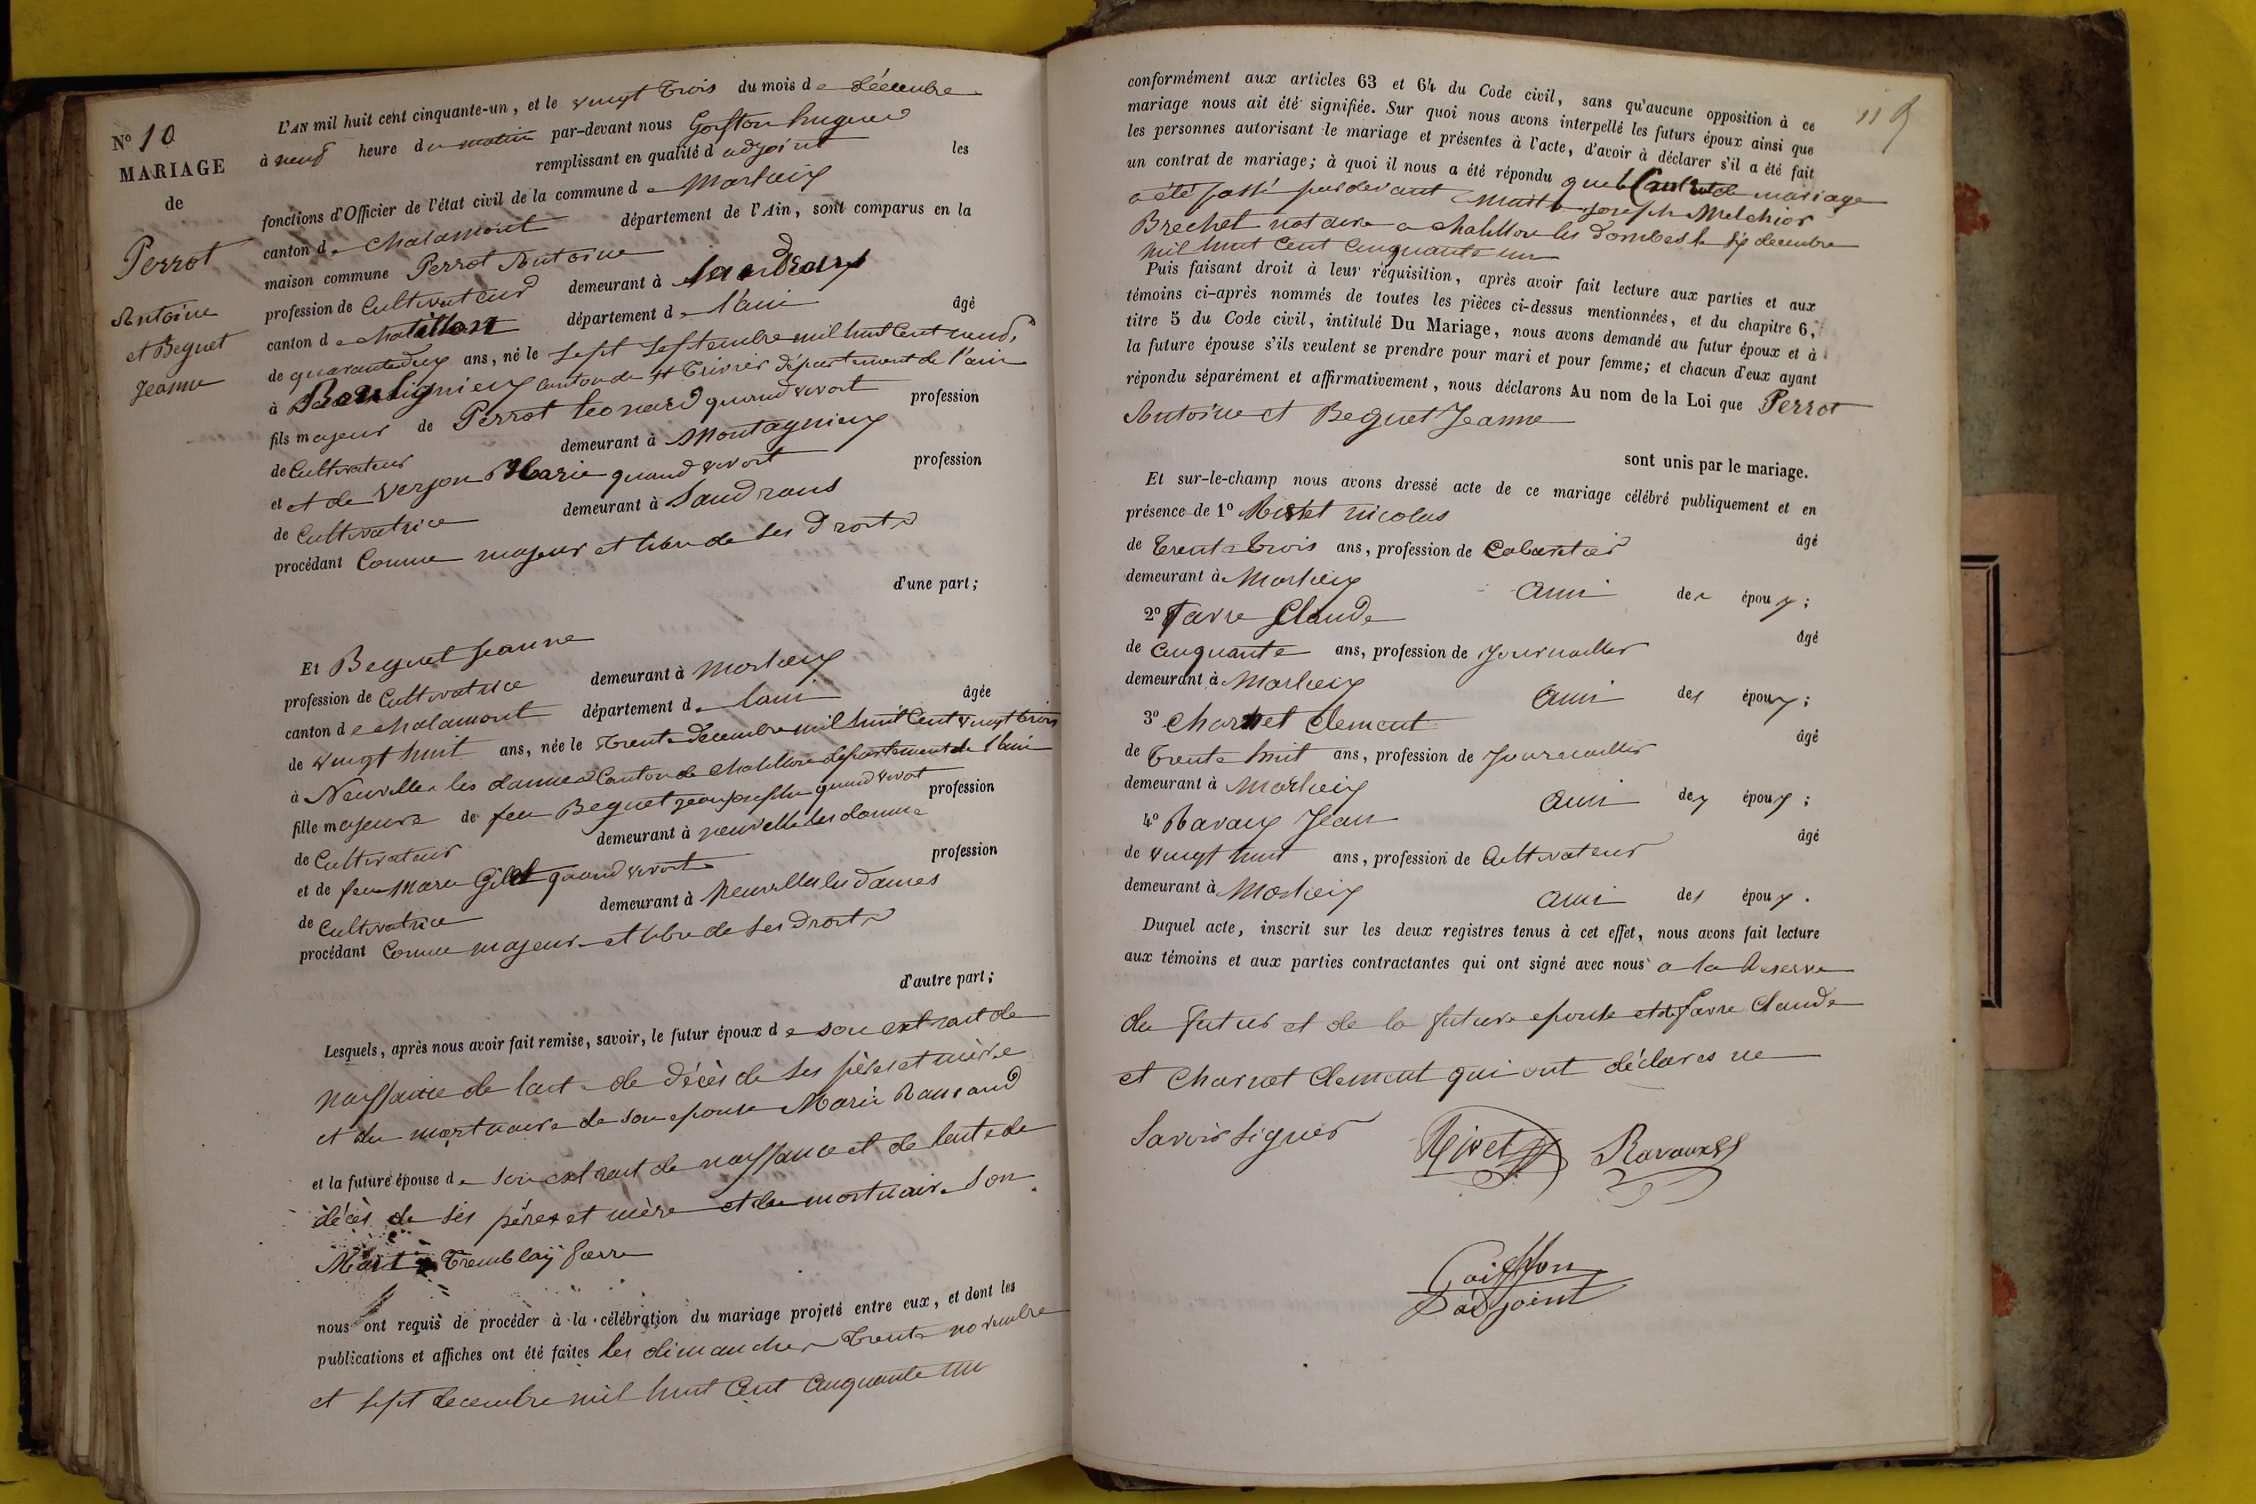 N° 10
MARIAGE
de
Perrot
Antoine
et Beguet
Jeanne
L'AN mil huit cent cinquante-un, et le vingt trois du mois de décembre
à neuf heure du matin par-devant nous Goiffon hugues
remplissant en qualité d adjoint les
fonctions d'Officier de l'état civil de la commune de Marlieix
canton de chalamont département de l'Ain, sont comparus en la
maison commune Perrot Antoine
profession de Cultivateur demeurant à Sandrans
canton de chatillon département de l'ain âgé
de quarante deux ans, né le sept septembre mil huit cent neuf
à Boulignieux canton de St Trivier département de l'ain
fils majeur de Perrot leonard quand vivoit profession
de Cultivateur demeurant à Montagnieux
et et de Verjon Marie quand vivoit profession
de Cultivatrice demeurant à Sandrans
procédant Comme majeur et libre de ses droits
d'une part;
Et Beguet Jeanne
profession de Cultivatrice demeurant à Marlieix
canton de chalamont département de lain âgée
de vingt huit ans, née le trente decembre mil huit Cent vingt trois
à Neuville les dames Canton de chatillon département de l'ain
fille majeure de feu Beguet jean joseph quand vivot profession
de Cultivateur demeurant à neuville les dames
et de feu Marie Gilet quand vivoit profession
de Cultivatrice demeurant à Neuville les dames
procédant Comme majeur et libre de ses droits
d'autre part;
Lesquels, après nous avoir fait remise, savoir, le futur époux de son extrait de
naissance de lacte de décès de ses pères et mère
et du mortuaire de son epouse Marie
et la future épouse de son extrait de naissance et de lacte de
décès de ses pères et mère et du mortuaire son
Mari Tremblay
nous ont requis de procéder à la célébration du mariage projeté entre eux, et dont les
publications et affiches ont été faites les dimanches trente novembre
et sept decembre mil huit Cent Cinquante un
119
conformément aux articles 63 et 64 du Code civil, sans qu'aucune opposition à ce
mariage nous ait été signifiée. Sur quoi nous avons interpellé les futurs époux ainsi que
les personnes autorisant le mariage et présentes à l'acte, d'avoir à déclarer s'il a été fait
un contrat de mariage; à quoi il nous a été répondu que le Contrat de mariage
a été passé par devant Maitre joseph Melchior
Brechet notaire a chatillon les dombes le six decembre
mil huit Cent Cinquante un
Puis faisant droit à leur réquisition, après avoir fait lecture aux parties et aux
témoins ci-après nommés de toutes les pièces ci-dessus mentionnées, et du chapitre 6,
titre 5 du Code civil, intitulé Du Mariage, nous avons demandé au futur époux et à
la future épouse s'ils veulent se prendre pour mari et pour femme; et chacun d'eux ayant
répondu séparément et affirmativement, nous déclarons Au nom de la Loi que Perrot
Antoine et Beguet Jeanne
sont unis par le mariage.
Et sur-le-champ nous avons dressé acte de ce mariage célébré publiquement et en
présence de 1° nicolas
de trente trois ans, profession de Cabaretier âgé
demeurant à Marlieix ami des époux;
2° favre Claude
de Cinquante ans, profession de Journallier âgé
demeurant à Marlieix ami des époux;
3° Charnet Clement
de trente huit ans, profession de Journallier âgé
demeurant à Marlieix ami des époux;
4° Ravaux Jean
de vingt huit ans, profession de Cultivateur âgé
demeurant à Marlieix ami des époux.
Duquel acte, inscrit sur les deux registres tenus à cet effet, nous avons fait lecture
aux témoins et aux parties contractantes qui ont signé avec nous a la reserve
du futur et de la future epouse et de favre Claude
et Charnet Clement qui ont déclarés ne
Savoir Signer
Rivet Ravaux
Goiffon
adjoint